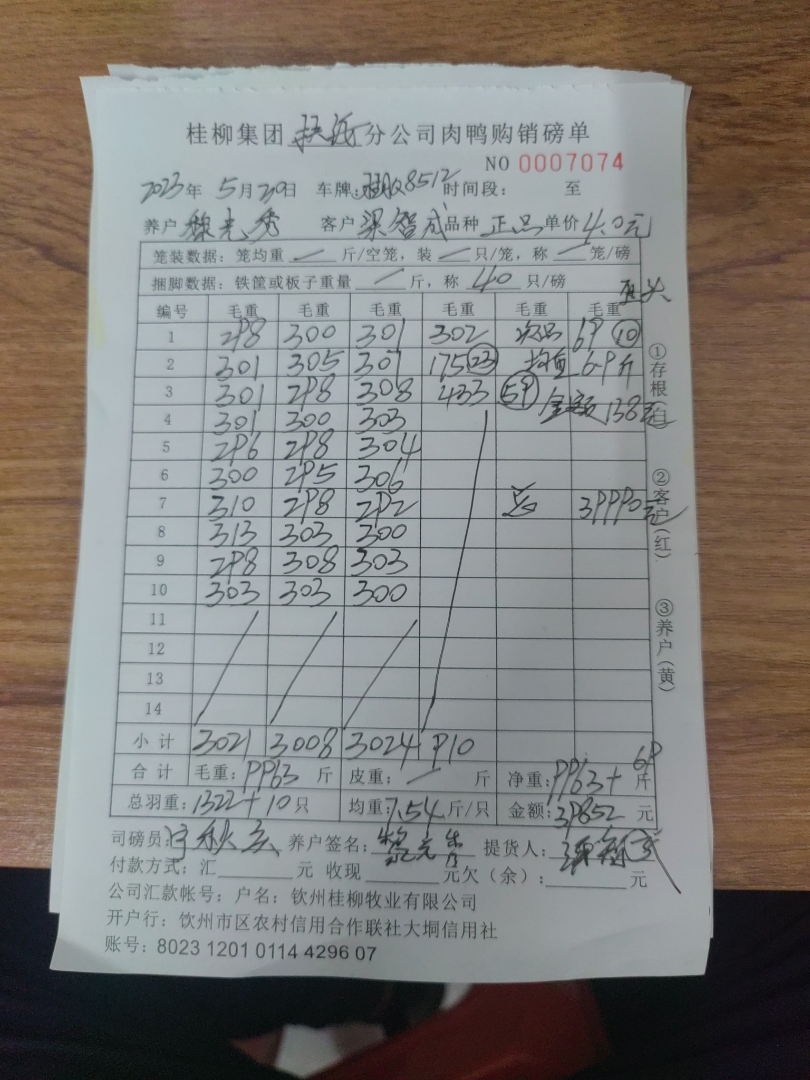 桂柳集团 分公司肉鸭购销磅单
NO 0007074
2023年 5月20日 车牌: 8512 时间段: 至
养户 客户 梁智成 品种 正品 单价 4.0元
笼装数据: 笼均重 — 斤/空笼, 装 — 只/笼, 称 — 笼/磅
捆脚数据: 铁筐或板子重量 — 斤, 称 40 只/磅
编号 毛重 毛重 毛重 毛重 毛重 毛重
1 298 300 301 302 次品 69 ⑩
2 301 305 307 175 ㉓ 均重 6.9斤
3 301 298 308 433 59 金额 138元
4 301 300 303
5 296 298 304
6 300 295 306
7 310 298 292 总 39990元
8 313 303 300
9 298 308 303
10 303 303 300
11
12
13
14
小计 3021 3008 3024 910
合计 毛重: 9963 斤 皮重: — 斤 净重: 9963+69 斤
总羽重: 1322+10 只 均重: 7.54 斤/只 金额: 39852 元
司磅员: 养户签名: 提货人:
付款方式: 汇 元 收现 元欠(余): 元
公司汇款帐号: 户名: 钦州桂柳牧业有限公司
开户行: 钦州市区农村信用合作联社大垌信用社
账号: 8023 1201 0114 4296 07
①存根(白) ②客户(红) ③养户(黄)